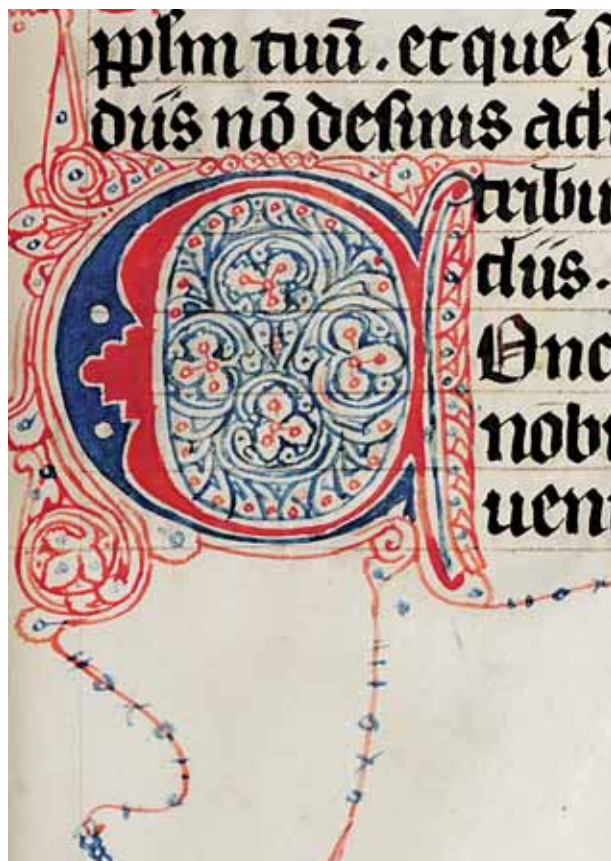 pplm tuū . et quē s
diis nō desinis ad
tribu
diis .
COnc
nobi
uen